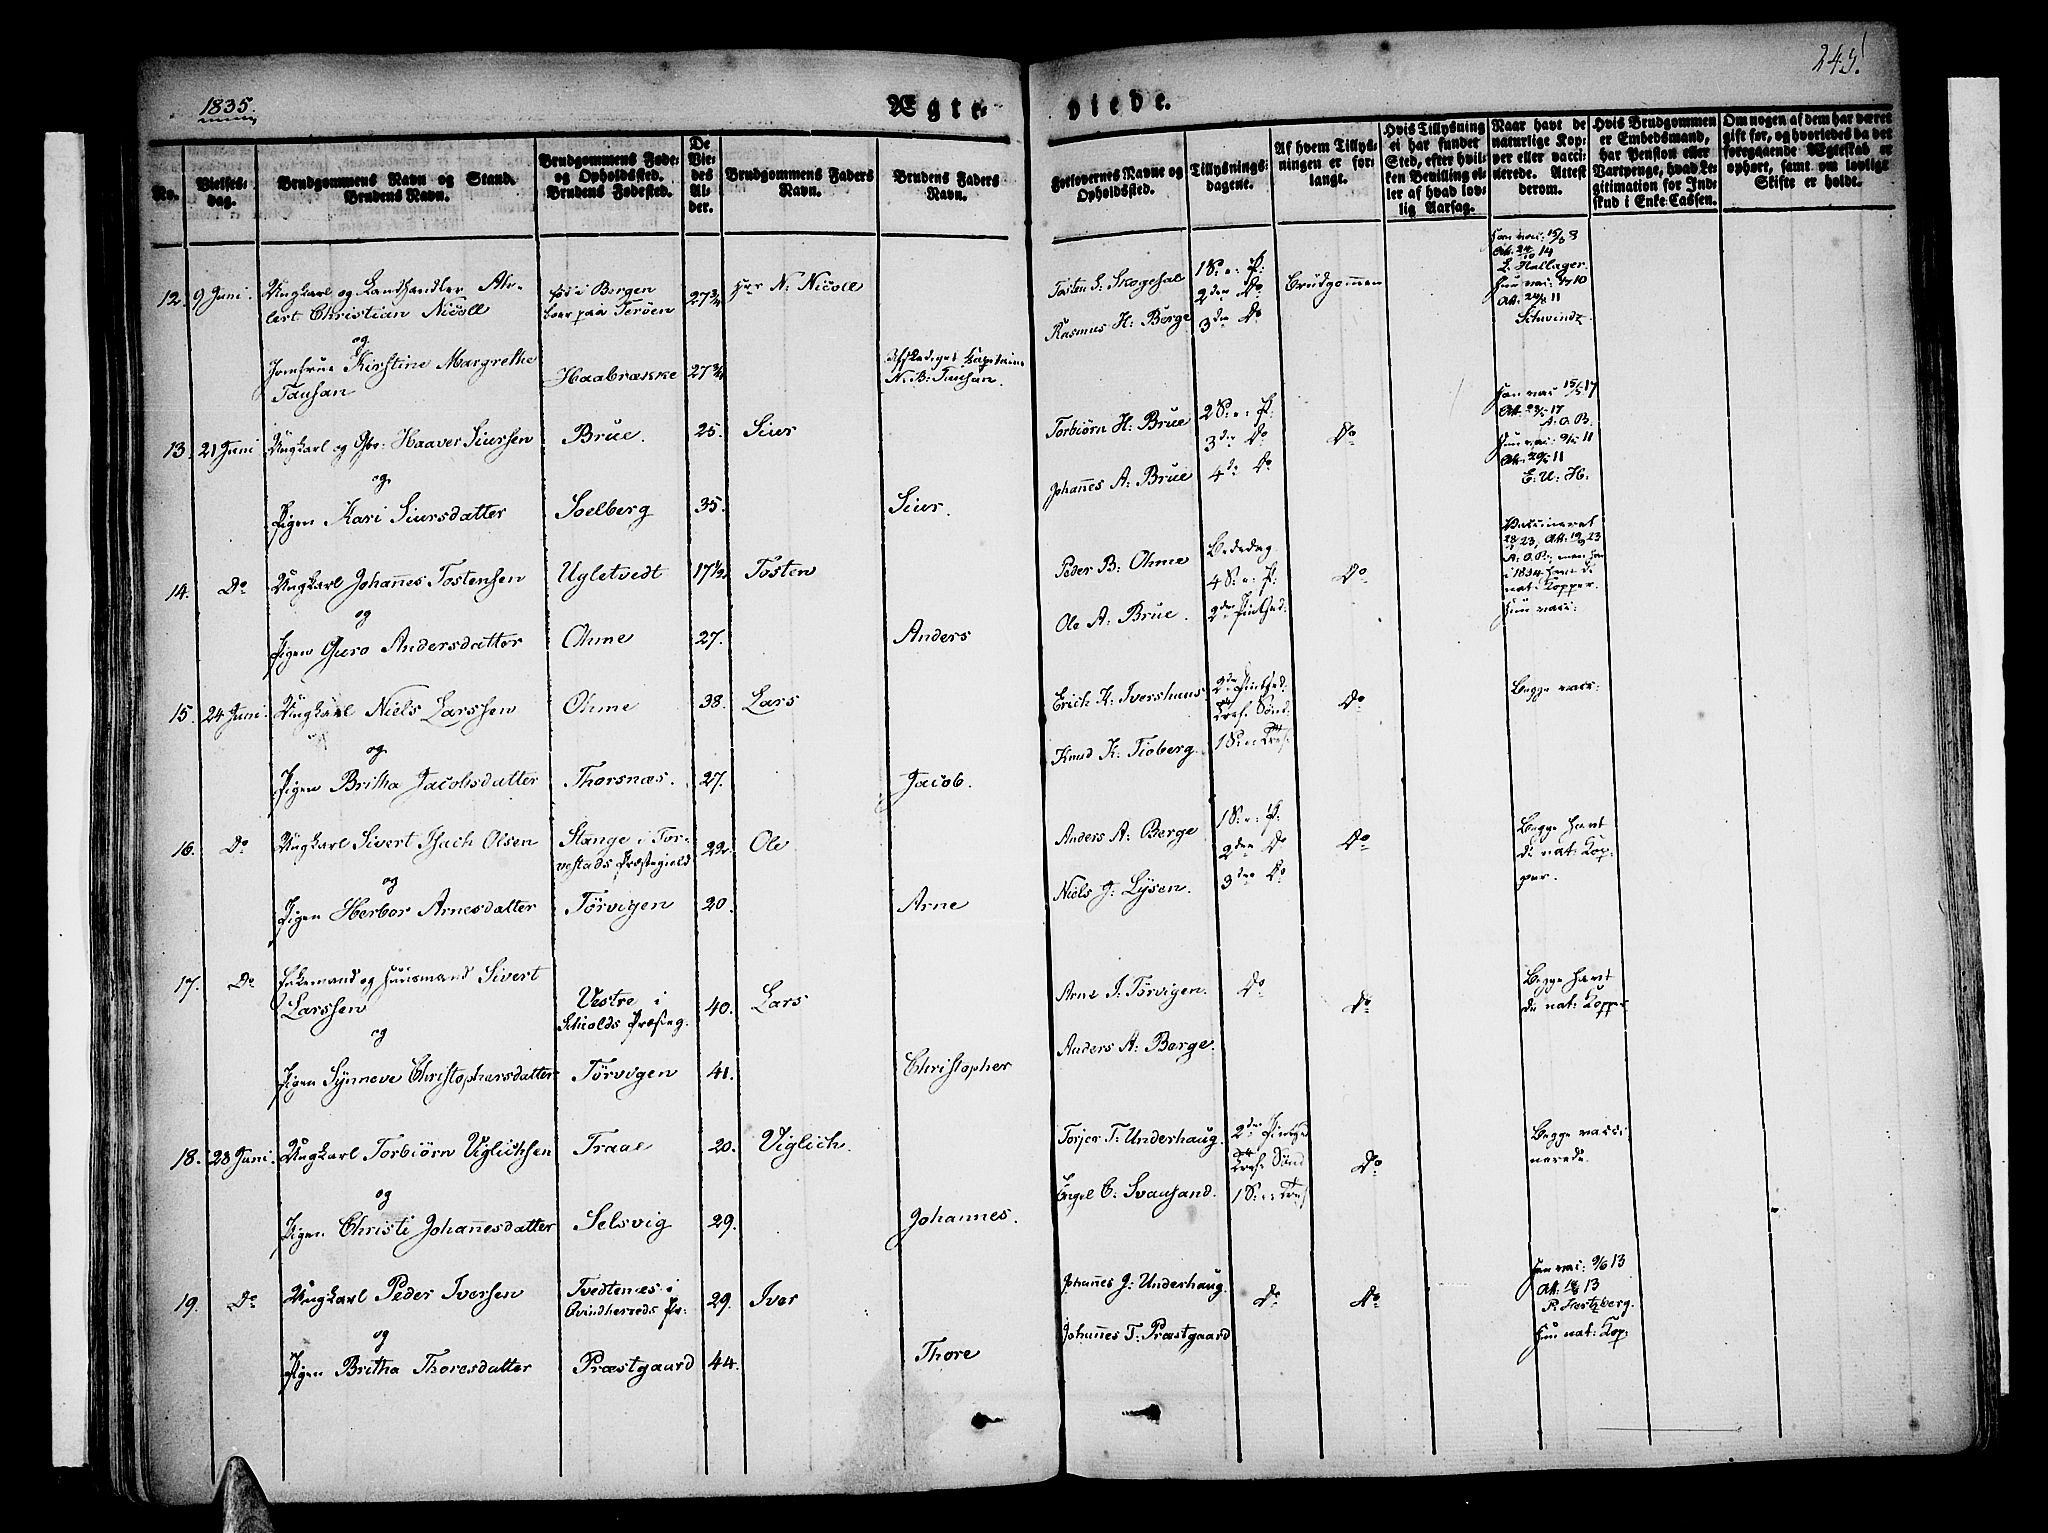 1835.
Ægte-
viede.
245.
No.
Vielses-
dag.
Brudgommens Navn og Stand.
Brudens Navn.
Brudgommens Føde-
og Opholdssted.
Brudens Fødested.
De
Vie-
des
Al-
der.
Brudgommens Faders
Navn.
Brudens Faders
Navn.
Forlovernes Navne og
Opholdssted.
Tillysnings-
dagene.
Af hvem Tillys-
ningen er for-
langt.
Hvis Tillysning
ei har fundet
Sted, efter hvil-
ken Bevilling el-
ler af hvad lov-
lig Aarsag.
Naar havt de
naturlige Kop-
per eller vacci-
nerede. Attest
derom.
Hvis Brudgommen
er Embedsmand,
har Pension eller
Vartpenge, hvad Le-
gitimation for Ind-
skud i Enke-Cassen.
Om nogen af dem har været
gift før, og hvorledes da det
foregaaende Ægteskab er
ophørt, samt om lovligt
Skifte er holdt.
12. 9 Juni Ungkarl og Landhandler Al-
lert Christian Nicoll
og
Jomfrue Kirstine Margrethe
Tausan
fød i Bergen
boer paa Terøen
Haabrække
27 3/4
27 3/4
Hr N: Nicoll
Afskediget Capitaine
N. B: Tausan.
Tosten S. Skogesal
Rasmus H: Berge
1 S: e: P:
2den Do
3die Do
Brudgommen
Han vac: 15/3 8
Att: 24/10 14
L. Hallager.
Hun vac: 10
Att: 24/ 11
Schwindt
13. 21 Juni Ungkarl og Gbr: Haaver Siursen
og
Pigen Kari Siursdatter
Brue.
Soelberg
25.
35.
Siur
Siur.
Torbiørn H: Brue
Johannes A: Brue
2 S: e: P:
3die Do
4de Do
Do
Han vac 15/5 17
Att: 23/ 17
A. O. B.
Hun vac: 9/ 11
Att: 29/ 11
E: U: H:
14. Do Ungkarl Johannes Tostensen
og
Pigen Guro Andersdatter
Ugletvedt
Ohme
17 1/2
27.
Tosten
Anders
Peder B: Ohme
Ole A: Brue.
Bededag
4 S: e: P:
2den Pintsed:
Do
Vaccineret
23, Att: 19/ 23
A. O. B.; men han
i 1834 havt di
nat: Kopper.
Hun vacc:
15. 24 Juni. Ungkarl Niels Larssen
og
Pigen Britha Jacobsdatter
Ohme
Thorsnæs.
38.
27.
Lars
Jacob.
Erich K: Ivershuus
Knud K: Tioberg.
2den Pintsed:
Tref: Sønd:
1 S: e: Tref:
Do
Begge vacc:
16. Do Ungkarl Sivert Isach Olsen
og
Pigen Herbor Arnesdatter
Stange i Tor-
vestads Præstegield
Tørvigen
22.
20.
Ole
Arne
Anders A: Berge
Niels J: Lysen.
1 S: e: P:
2den Do
3die Do
Do
Begge havt
di nat: Kop-
per.
17. Do Enkemand og Huusmand Sivert
Larssen
og
Pigen Synneve Christophersdatter
Vestre i
Schiolds Præsteg.
Tørvigen
40.
41.
Lars
Christopher
Arne J: Tørvigen.
Anders A: Berge.
Do
Do
Begge havt
di nat: Kopper
18. 28 Juni. Ungkarl Torbiørn Viglichsen
og
Pigen Christi Johannesdatter
Traae
Selsvig
20.
29.
Viglich.
Johannes.
Torjer T: Underhaug.
Engel C: Svausand.
2den Pintsed
Tref: Sønd
1 S: e: Tref
Do
Begge vacci-
nerede.
19. Do Ungkarl Peder Iversen
og
Pigen Britha Thoresdatter
Tvedtenæs i
Qvindherreds Pr:
Præstgaard
29.
44.
Iver
Thore
Johannes J: Underhaug.
Johannes T: Præstgaard
Do
Do
Han vac: 9/6 13
Att: 13
P. Hertzberg.
Hun nat: Kop: